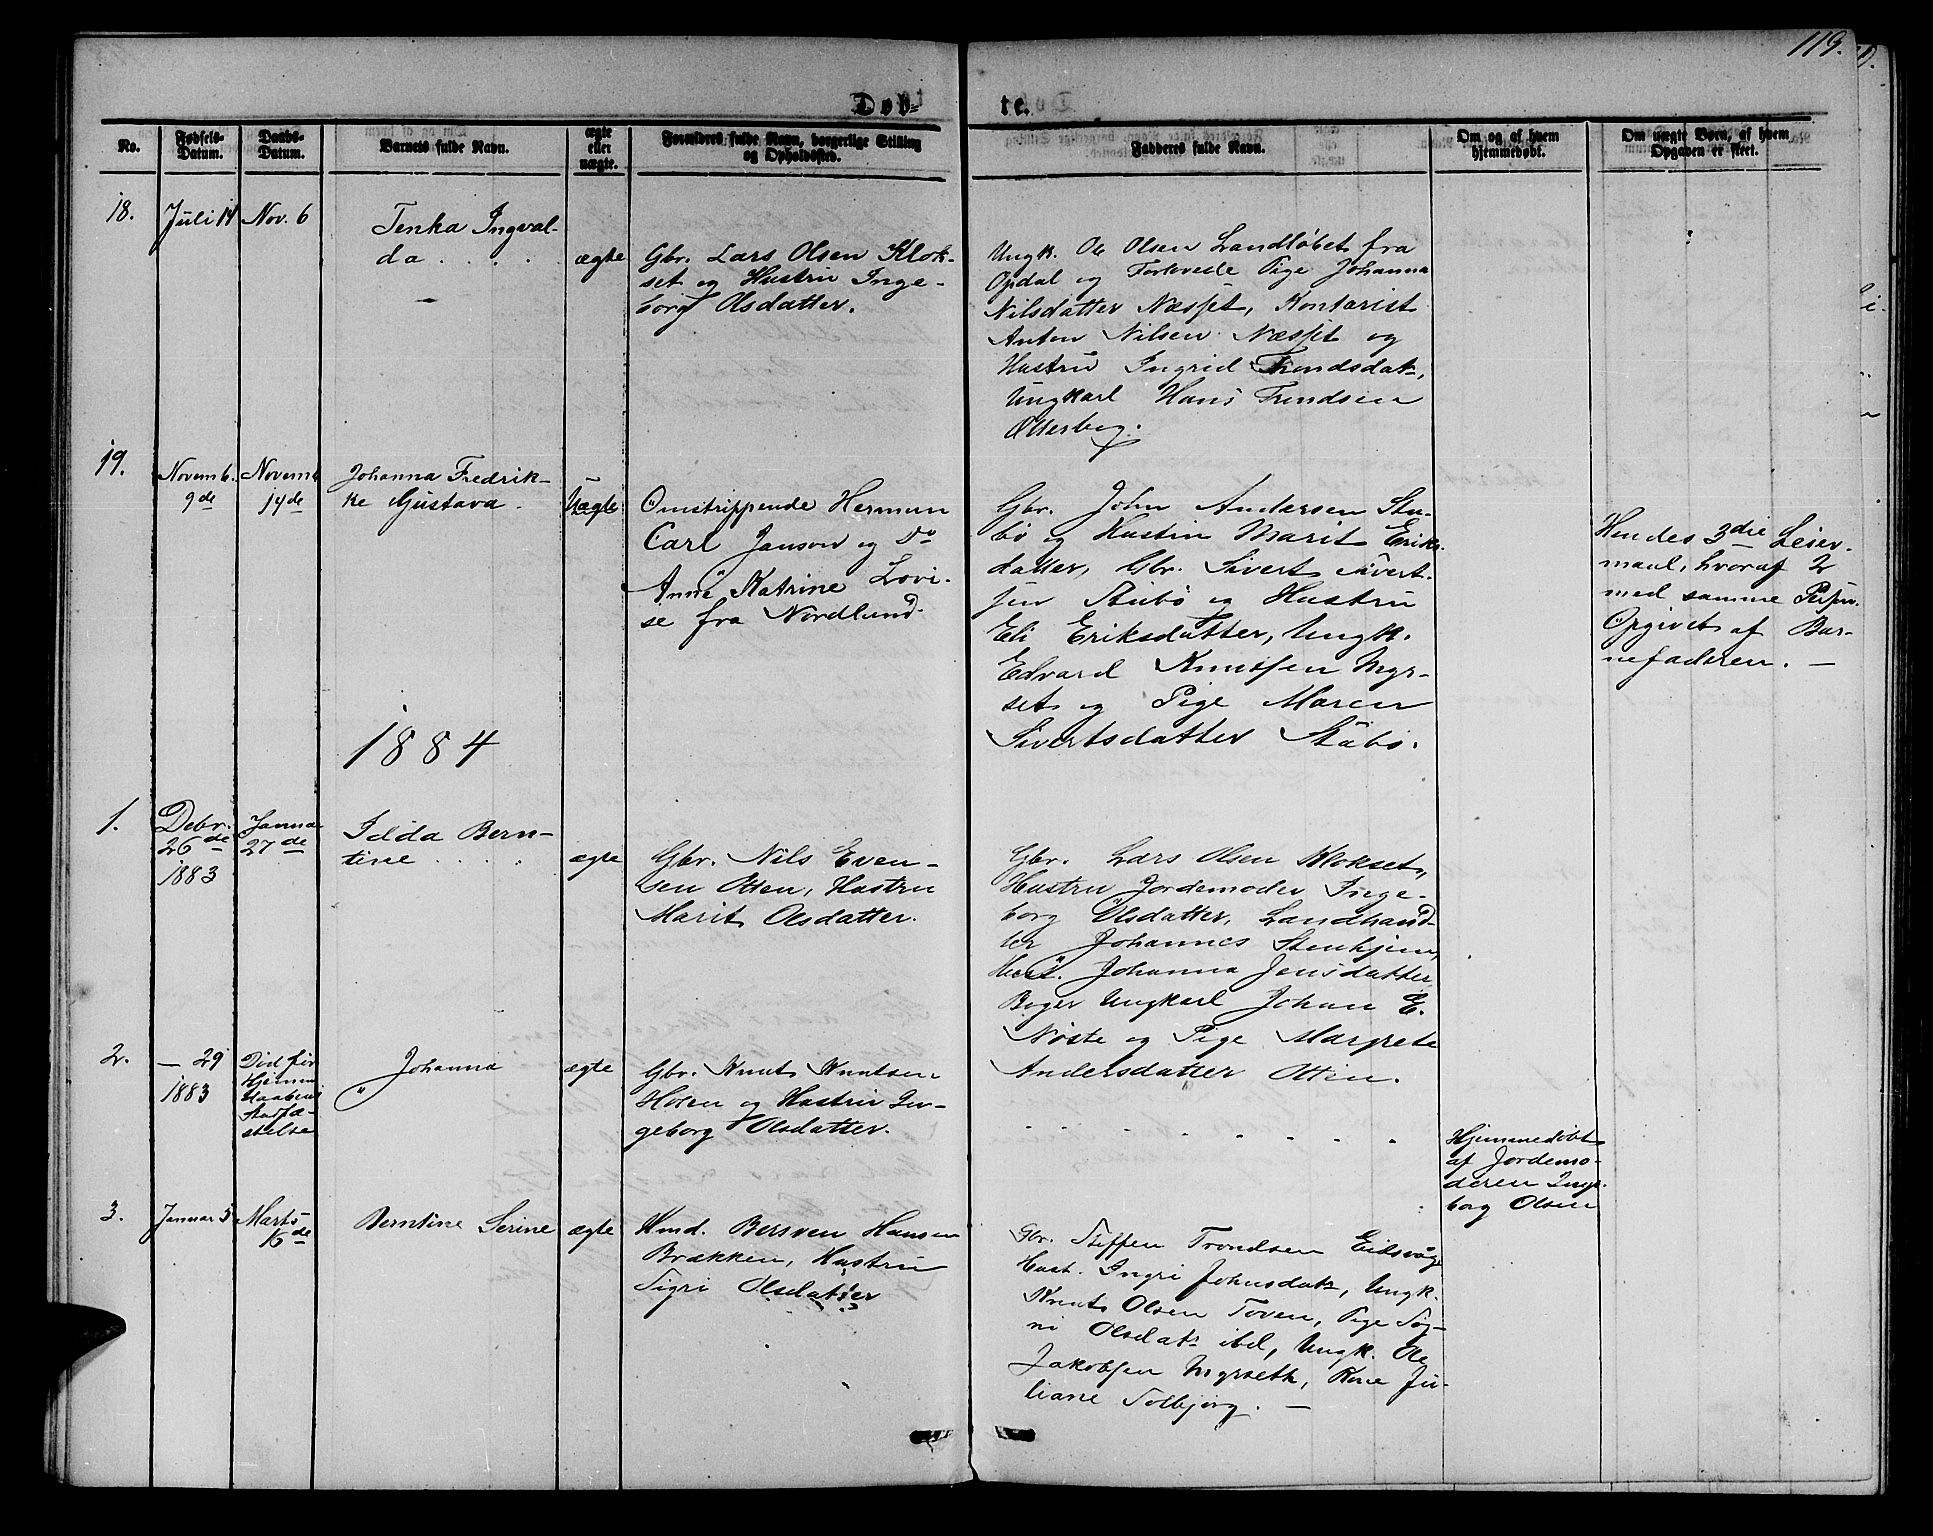 119.
Døb-
te.
No.
Fødsels-
Datum.
Daabs-
Datum.
Barnets fulde Navn.
ægte
eller
uægte.
Forældres fulde Navn, borgerlige Stilling
og Opholdssted.
Fadderes fulde Navn.
Om og af hvem
hjemmedøbt.
Om uægte Børn, af hvem
Opgaven er skeet.
18.
Juli 14
Nov. 6
Tenka Ingval-
da . . . .
ægte
Gbr. Lars Olsen Klok-
set og Hustru Inge-
borg Olsdatter.
Ungk. Ole Olsen Landløbet fra
Opdal og Forlovede Pige Johanna
Nilsdatter Næsset, Kontorist
Anton Nilsen Næsset og
Hustru Ingrid Trondsdat,
Ungkarl Hans Trondsen
Otterbeg.
19.
Novemb.
9de
Novemb
14de
Johanna Fredrik-
ke Gustava.
Uægte
Omstrippende Herman
Carl Janson og Do
Anna Katrine Lovi-
se fra Nordland.
Gbr. John Andersen Stu-
bø og Hustru Marit Eriks-
datter, Gbr. Sivert Sivert-
sen Stubø og Hustru
Eli Eriksdatter, Ungk.
Edvard Knutsen Myr-
set og Pige Maren
Sivertsdatter Stubø.
Hendes 3die Leier-
maal, hvoraf 2
med samme Person.
Opgivet af Bar-
nefaderen. —
1884
1.
Debr.
26de
1883
Januar
27de
Ilda Bern-
tine . . . .
ægte
Gbr. Nils Even-
sen Otten, Hustru
Marit Olsdatter.
Gbr. Lars Olsen Klokset,
Hustru Jordemoder Inge-
borg Olsdatter, Landhand-
ler Johannes Stenhjem,
Hust. Johanna Jensdatter
Bager Ungkarl Johan E.
Nøste og Pige Margrete
Andersdatter Otten.
2.
— 29
1883
Død før
Hjemme
daabens
Stadfæ-
stelse
Johanna
ægte
Gbr. Knut Knutsen
Holen og Hustru In-
geborg Olsdatter.
Hjemmedøbt
af Jordemo-
deren Inge-
borg Olsen
3.
Januar 5
Marts
16de
Berntine Serine
ægte
Hmd. Bersven Hansen
Brækken, Hustru
Sigri Olsdatter
Gbr. Steffen Trondsen Eidsvåg
Hust. Ingri Johnsdat, Ungk.
Knut Olsen Toven, Pige Sig-
ni Olsdat ibd, Ungk. Ole
Jakobsen Myrseth, Kone Ju-
liane Solbjørg. —